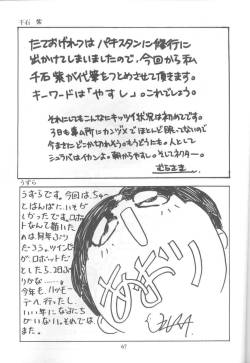 千石 紫
たておげれつはパキスタンに修行に
出かけてしまいましたので、今回から私
千石 紫が代筆をつとめさせて頂きます。
キーワードは「やすし」。これでしょう。
それにしてもこんなにキッツイ状況は初めてです。
3日も事ム所にカンヅメでほとんど眠ってないので
今さらどこがかわろうもどうだにも。人として
シュラバはイカンよ。朝からやすし。そしてネクター。
むらさき
うずら
うずらです。今回は、ちょっ
とはんぱだいそが
しかったです。ロボッ
トなんて描いた
のは何年ぶり
だろう。ツインビー
がロボットだ
としたら、3日ぶ
りかな……。
今年も、ハッピー
デーへ行ったし、
いい年になるにち
がいない。それでは
また。
67